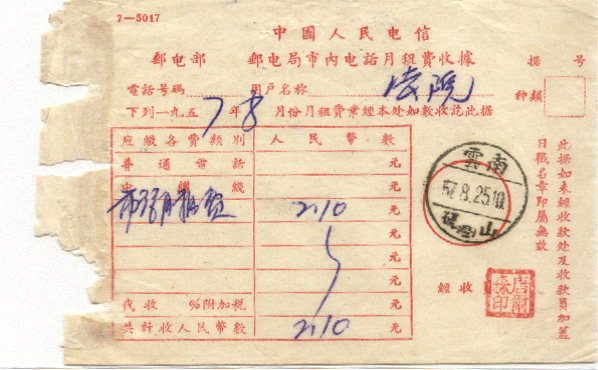 7—5017
中國人民电信
郵电部 郵电局市內电話月租費收據
据 号
電話号碼 用戶名称
种類
下列一九五7年8月份月租費業經本处如數收訖此据
应繳各費類別 人民幣數
普通電話 元
中繼綫 元
2.10 元
元
元
元
代收 %附加稅 元
共計收人民幣數 2.10 元
雲南
57.8.25.10
硯山
經收
此据如未經收款处及收款員加蓋
日戳名章即屬無效